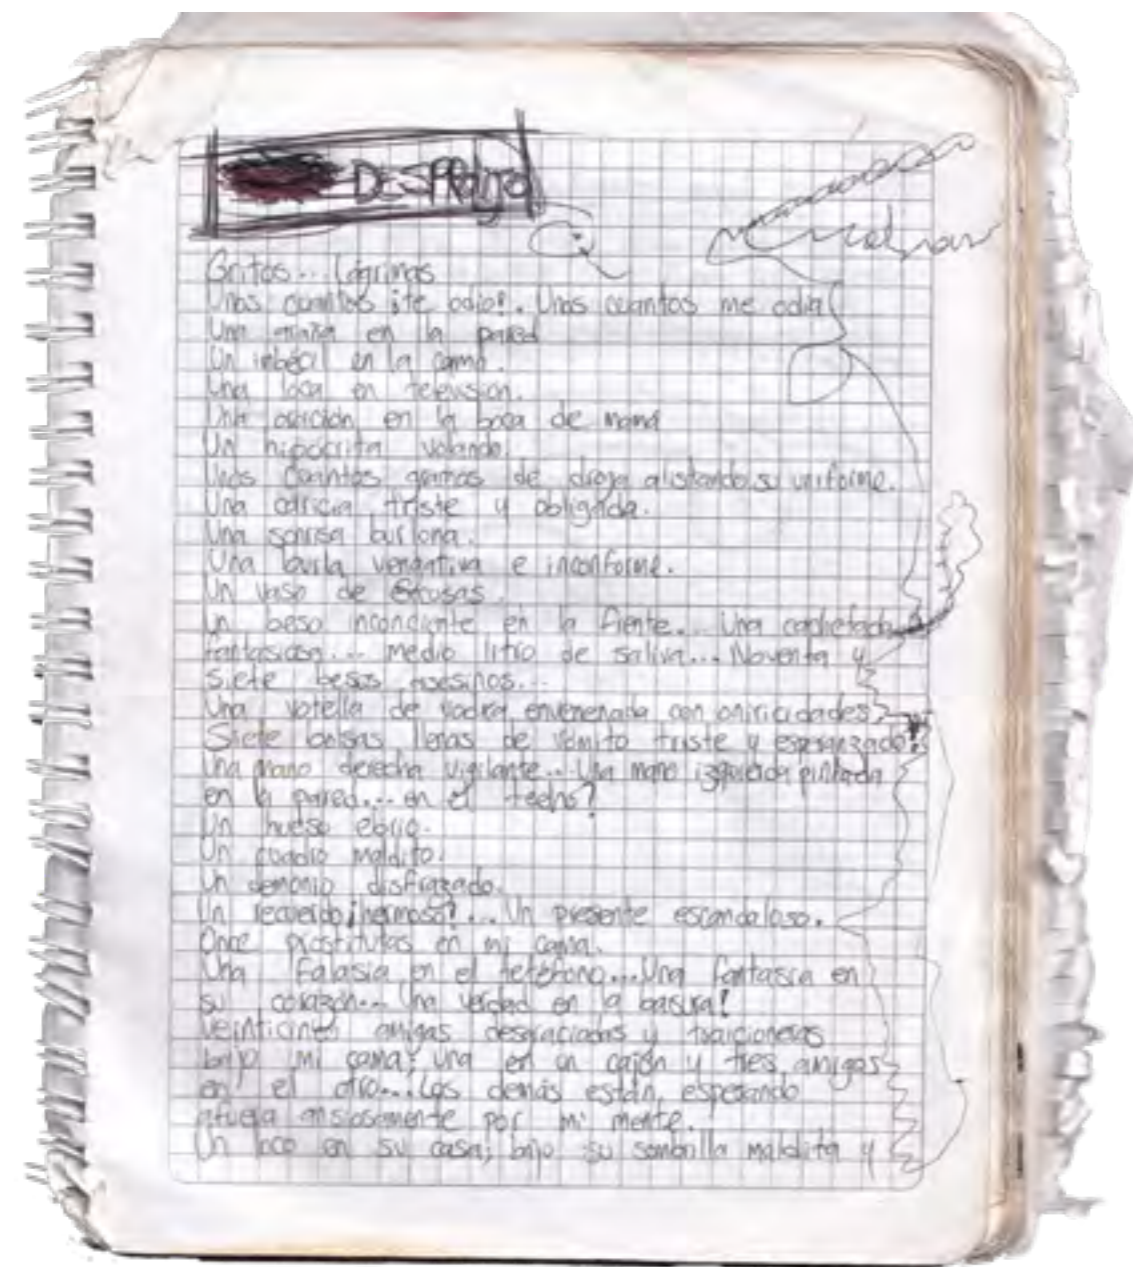 DESPRoLIJO
Gritos... Lágrimas
Unos cuantos ¡te odio!. Unos cuantos me odia
Una araña en la pared
Un imbécil en la cama.
Una loca en televisión.
Una oración en la boca de mamá
Un hipócrita volando.
Unos cuantos gramos de droga alistando su uniforme.
Una caricia triste y obligada.
Una sonrisa burlona.
Una burla vengativa e inconforme.
Un vaso de Excusas.
Un beso incondiente en la frente... Una cachetada
fantasiosa... medio litro de saliva... Noventa y
siete besos asesinos...
Una votella de vodka envenenada con oniricidades
Siete bolsas llenas de vómito triste y esperanzado.
Una mano derecha vigilante... Una mano izquierda pintada
en la pared... en el techo?
Un hueso ebrio.
Un cuadro maldito.
Un demonio disfrazado.
Un recuerdo ¡hermoso?... Un presente escandaloso.
Once prostitutas en mi cama.
Una falasia en el teléfono... Una fantasia en
su corazón... Una verdad en la basura!
veinticinco amigas desgraciadas y traicioneras
bajo mi cama; una en un cajón y tres amigos
en el otro... Los demás están, esperando
afuera ansiosamente por mi mente.
Un loco en su casa; bajo su sombrilla maldita y